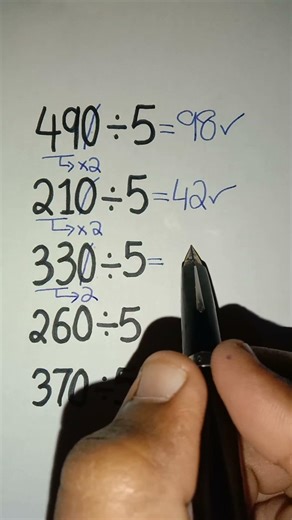 490÷5=98✓
→×2
210÷5=42✓
→×2
330÷5=
→2
260÷5
370÷